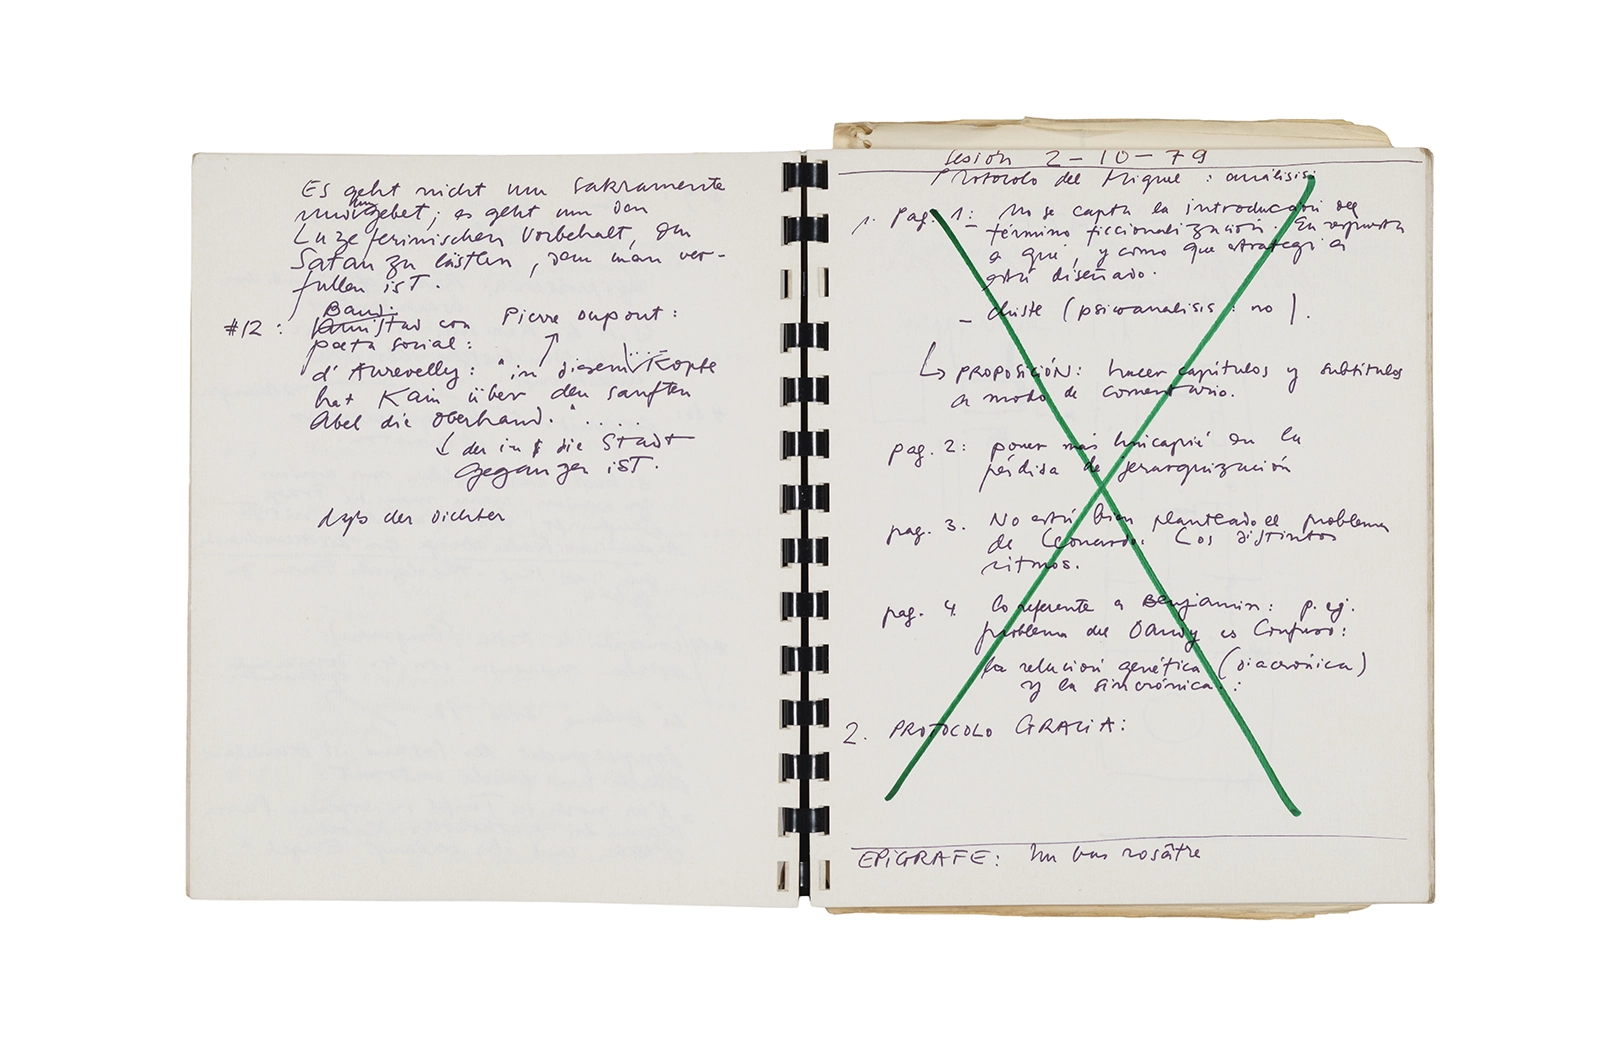 Es geht nicht um Sakramente
und Gebet; es geht um den
Luziferinischen Vorbehalt, den
Satan zu lästern, dem man ver-
fallen ist.
Baud.:
#12: Amistad con Pierre Dupont:
poeta social:
d'Aurevelly: "in diesem ... Kopfe
hat Kain über den sanften
Abel die Oberhand." ....
↳ der in $ die Stadt
gegangen ist.
daß der Dichter
Sesión 2-10-79
Protocolo del Miguel: análisis:
1. Pag. 1: No se capta la introducción del
término ficcionalización. En respuesta
a qué, y como que estrategia
está diseñado.
- chiste (psicoanalisis: no).
↳ PROPOSICIÓN: hacer capítulos y subtítulos
a modo de comentario.
pag. 2: poner más hincapié en la
pérdida de jerarquización
pag. 3. No está bien planteado el problema
de Leonardo. Los distintos
ritmos.
pag. 4. lo referente a Benjamin: p. ej.
problema del Dandy es confuso:
la relación genética (diacrónica)
y la sincrónica.:
2. PROTOCOLO GRACIA:
EPÍGRAFE: Un bas rosâtre